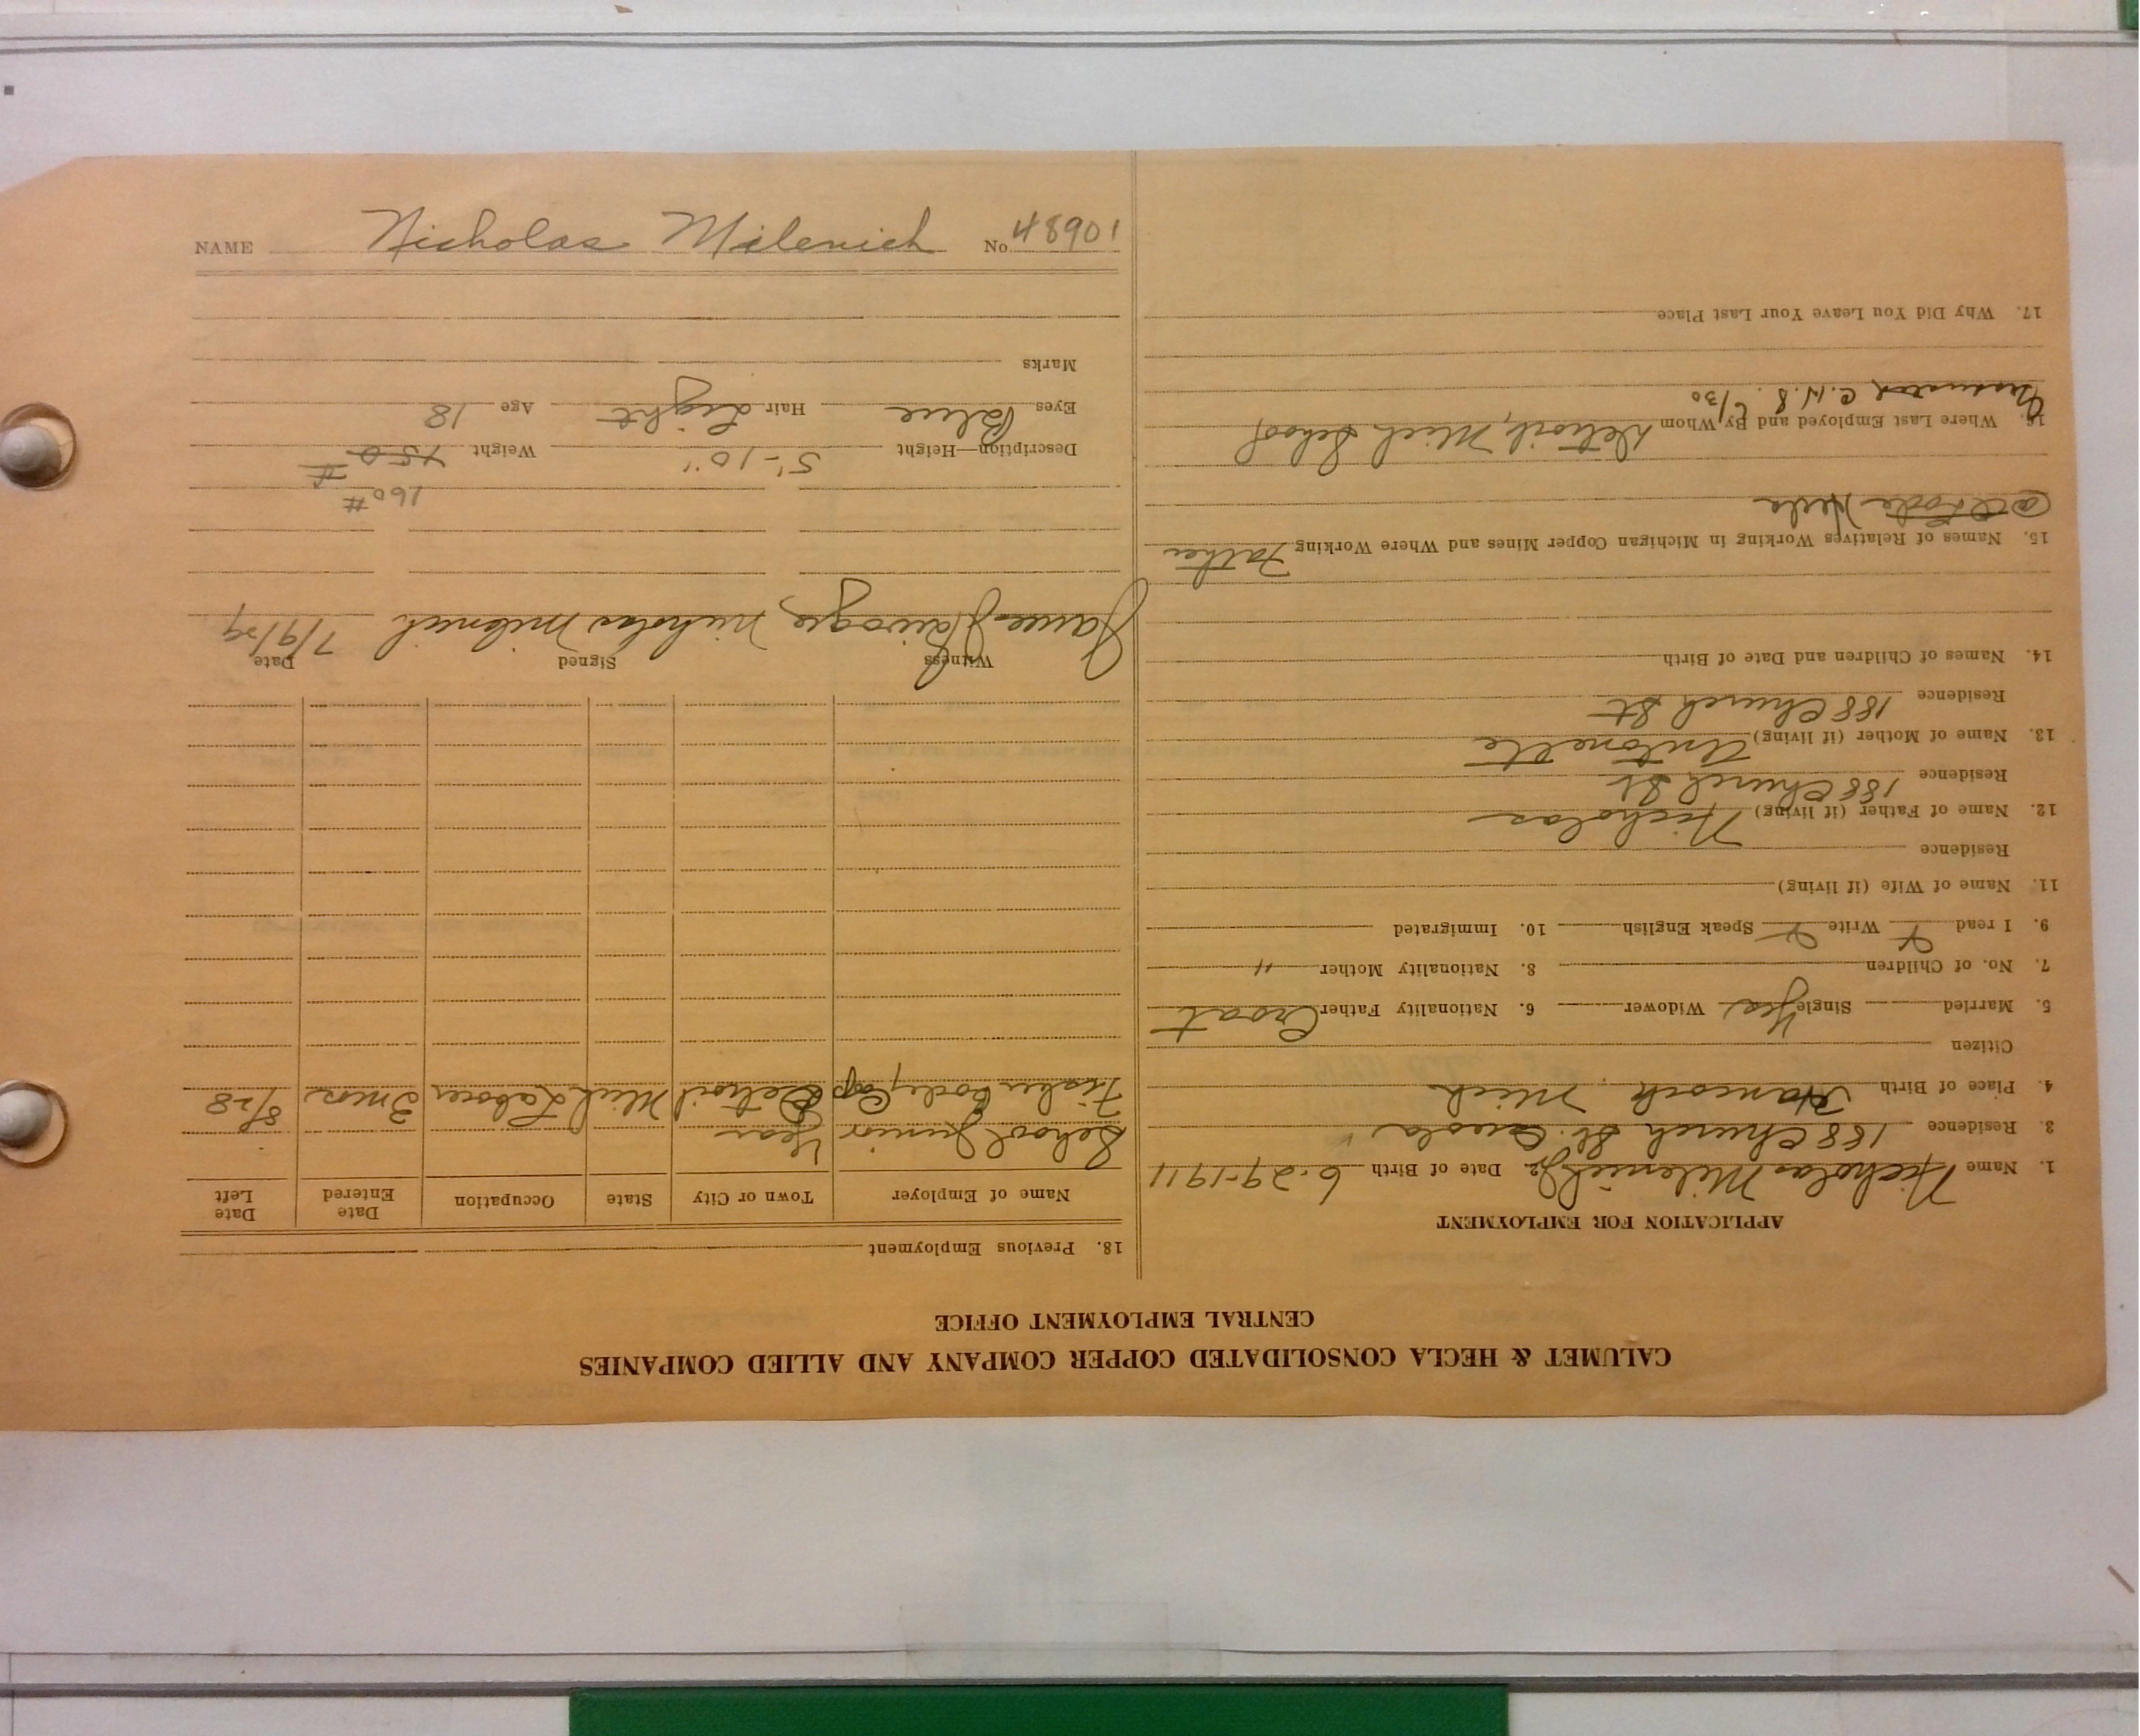 NAME Nicholas Milenich No 48901
CALUMET & HECLA CONSOLIDATED COPPER COMPANY AND ALLIED COMPANIES
CENTRAL EMPLOYMENT OFFICE
APPLICATION FOR EMPLOYMENT
1. Name Nicholas Milenich Jr. 2. Date of Birth 6-29-1911
3. Residence 188 Church St. Osceola
4. Place of Birth Hancock, Mich
Citizen
5. Married Single Yes Widower 6. Nationality Father Croat
7. No. of Children 8. Nationality Mother "
9. I read Write Speak English 10. Immigrated
11. Name of Wife (if living)
Residence
12. Name of Father (if living) Nicholas
Residence 188 Church St
13. Name of Mother (if living) Antonette
Residence 188 Church St
14. Names of Children and Date of Birth
15. Names of Relatives Working in Michigan Copper Mines and Where Working Father
Hecla
16. Where Last Employed and By Whom Detroit, Mich School
Graduated C.H.S. 6/30
17. Why Did You Leave Your Last Place
18. Previous Employment
Name of Employer Town or City State Occupation Date Entered Date Left
School Junior Year
Fisher Body Corp Detroit Mich Laborer 3 mos 8/28
Witness Signed Date
James Nicholas Milenich 7/9/29
160#
Description—Height 5'-10" Weight 150#
Eyes Blue Hair Light Age 18
Marks